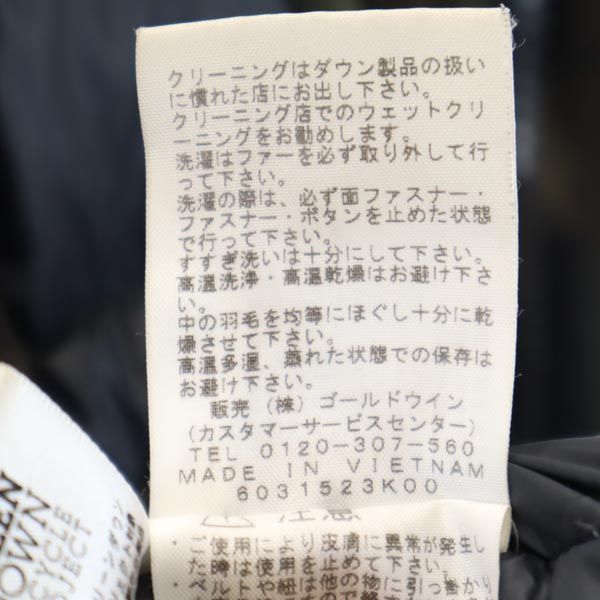 クリーニングはダウン製品の扱い
に慣れた店にお出し下さい。
クリーニング店でのウェットクリ
ーニングをお勧めします。
洗濯はファーを必ず取り外して行
って下さい。
洗濯の際は、必ず面ファスナー・
ファスナー・ボタンを止めた状態
で行って下さい。
すすぎ洗いは十分にして下さい。
高温洗浄・高温乾燥はお避け下さ
い。
中の羽毛を均等にほぐし十分に乾
燥させて下さい。
高温多湿、蒸れた状態での保存は
お避け下さい。
販売（株）ゴールドウイン
(カスタマーサービスセンター)
TEL 0120-307-560
MADE IN VIETNAM
6031523K00
注意
・ご使用により皮膚に異常が発生し
た時は使用を止めて下さい。
・ベルトや紐は他の物に引っ掛かり
OWN